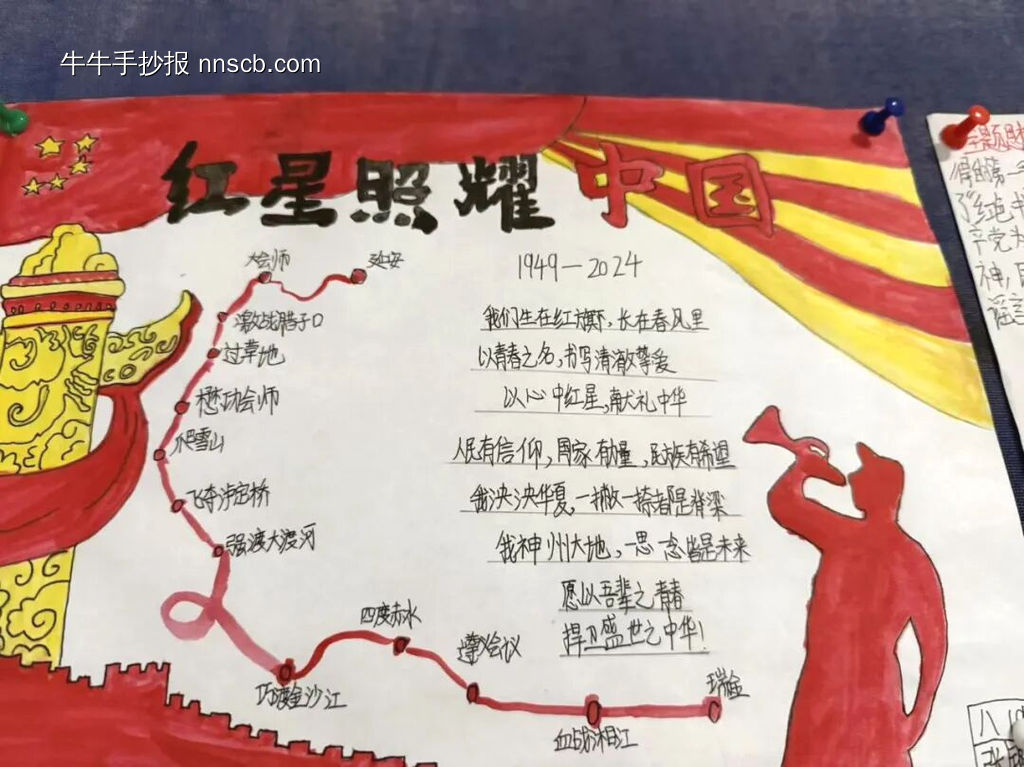 牛牛手抄报 nnscb.com
红星照耀中国
1949—2024
会师
延安
激战腊子口
过草地
懋功会师
爬雪山
飞夺泸定桥
强渡大渡河
巧渡金沙江
四度赤水
遵义会议
血战湘江
瑞金
我们生在红旗下,长在春风里
以青春之名,书写清澈挚爱
以心中红星,献礼中华
人民有信仰,国家有力量,民族有希望
我泱泱华夏,一撇一捺都是脊梁
我神州大地,一思一念皆是未来
愿以吾辈之青春
捍卫盛世之中华!